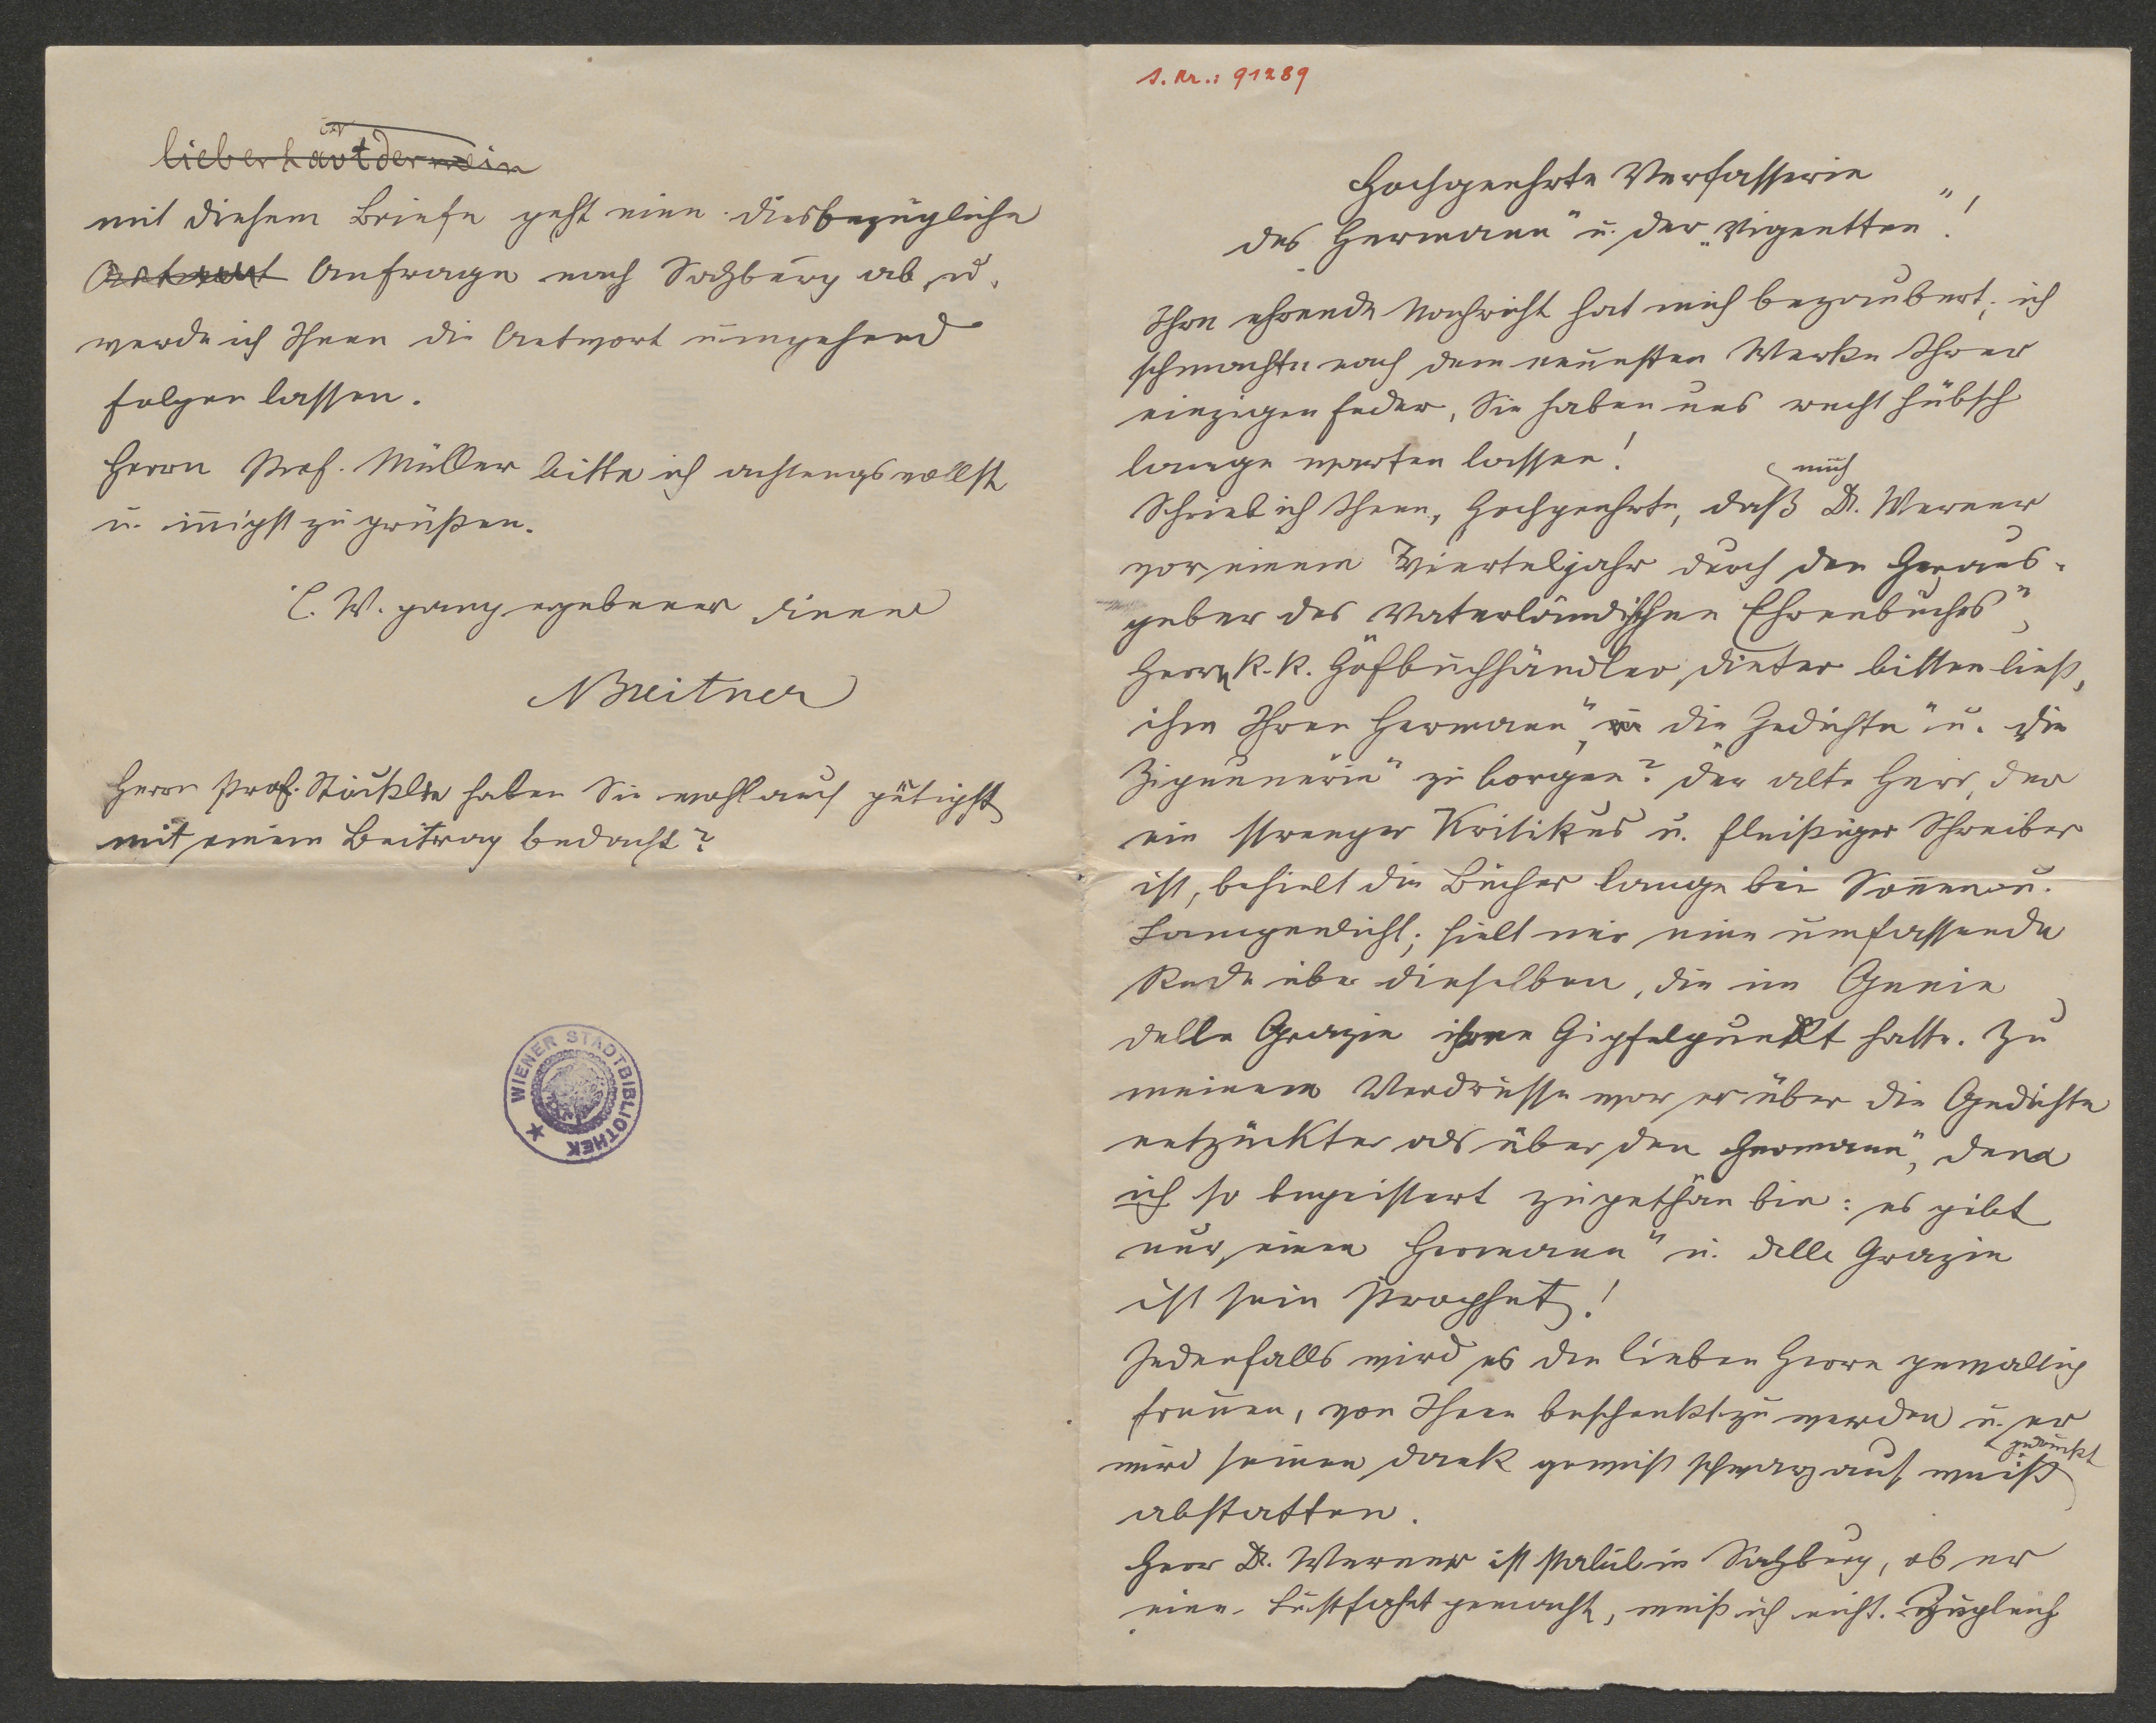 J. Nr.: 91289
Hochgeehrte Verfasserin
des „Hermann" u. der „Vignetten"!
Ihre ehrende Nachricht hat mich bezaubert; ich
schmachte nach dem neuesten Werke Ihrer
einzigen Feder, Sie haben uns recht hübsch
lange warten lassen!
mich
Schrieb ich Ihnen, Hochgeehrte, daß Dr. Werner
vor einem Vierteljahr durch den Heraus-
geber des vaterländischen Ehrenbuches",
Herrn k. k. Hofbuchhändler Dieter bitten ließ,
ihm Ihren Hermann", die Gedichte" u. die
Zigeunerin" zu borgen? Der alte Herr, der
ein strenger Kritikus u. fleißiger Schreiber
ist, behielt die Bücher lange bei Sonnen u.
Lampenlicht; hielt mir eine umfassende
Rede über dieselben, die im Genie
delle Grazie ihren Gipfelpunkt hatte. Zu
meinem Verdrusse war er über die Gedichte
entzückter als über den Hermann", dem
ich so begeistert zugethan bin: es gibt
nur einen Hermann" u. delle Grazie
ist sein Prophet!
Jedenfalls wird es den lieben Herrn gewaltig
freuen, von Ihnen beschenkt zu werden u. er
gedruckt
wird seinen Dank gewiß schwarz auf weiß
abstatten.
Herr Dr. Werner ist stabil in Salzburg, ob er
eine Lustfahrt gemacht, weiß ich nicht. Zugleich
mit diesem Briefe geht eine diesbezügliche
Antwort Anfrage nach Salzburg ab, u.
werde ich Ihnen die Antwort umgehend
folgen lassen.
Herrn Prof. Müller bitte ich achtungsvollst
u. innigst zu grüßen.
E. W. ganz ergebener Diener
ABreitner
Herrn Prof. Stöckle haben Sie wohl auch gütigst
mit einem Beitrag bedacht?
WIENER STADTBIBLIOTHEK